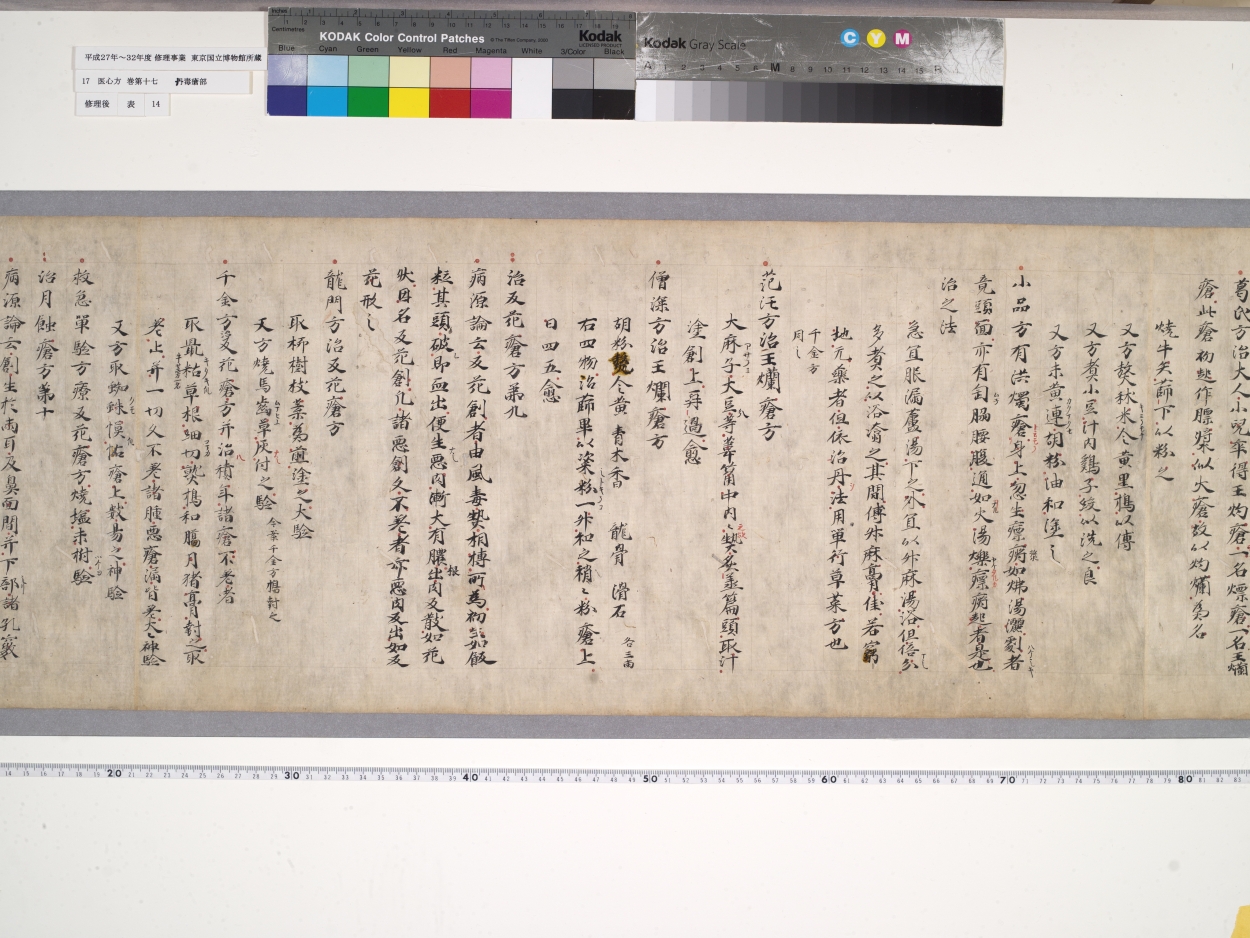 平成27年～32年度 修理事業 東京国立博物館所蔵
17 医心方 巻第十七 丹毒瘡部
修理後 表 14
Inches
Centimetres
KODAK Color Control Patches
© The Tiffen Company, 2000
Kodak
LICENSED PRODUCT
Blue Cyan Green Yellow Red Magenta White 3/Color Black
Kodak Gray Scale
C Y M
A 1 2 3 4 5 6 M 8 9 10 11 12 13 14 15 B
葛氏方治大人小兒卒得王灼瘡一名熛瘡一名王爛
瘡此瘡初起作膘漿似火瘡故以灼爛為名
燒牛矢篩下以粉之
又方熬秫米令黄黒搗以傅
又方煑小豆汁内鷄子絞以洗之良
又方末黄連胡粉油和塗之
小品方有洪燭瘡身上忽生瘭漿如沸湯灑劇者
竟頭面亦有胸脇腰腹通如火湯爍瘭漿起者是也
治之法
急宜服漏蘆湯下之外宜以升麻湯浴但倍分
多煑之以浴瀹之其間傅升麻膏佳若窮
地无藥者但依治丹法用單行草菜方也
千金方
用之
范汪方治王爛瘡方
大麻子大豆等葦筩中内炙蒸篇頭取汁
塗創上再過愈
僧深方治王爛瘡方
胡粉令黄 青木香 龍骨 滑石 各三兩
右四物治篩畢以粢粉一升和之稍々粉瘡上
日四五愈
治反花瘡方第九
病源論云反花創者由風毒熱相摶所為初生如飯
粒其頭破即血出便生惡肉漸大有膿出肉反散如花
状因名反花創凡諸惡創久不差者亦惡肉反出如反
花形之
龍門方治反花瘡方
取柳樹枝葉為煎塗之大驗
又方燒馬齒草灰付之驗 今案千金方搗封之
千金方反花瘡方并治積年諸瘡不差者
取鼠粘草根細切熟搗和臘月猪膏封之取
差止并一切久不差諸腫惡瘡漏皆差大々神驗
又方取蜘蛛慔怗瘡上数易之神驗
救急單驗方療反花瘡方燒塩末樹驗
治月蝕瘡方第十
病源論云創生於兩耳及鼻面間并下部諸孔竅
20 30 40 50 60 70 80